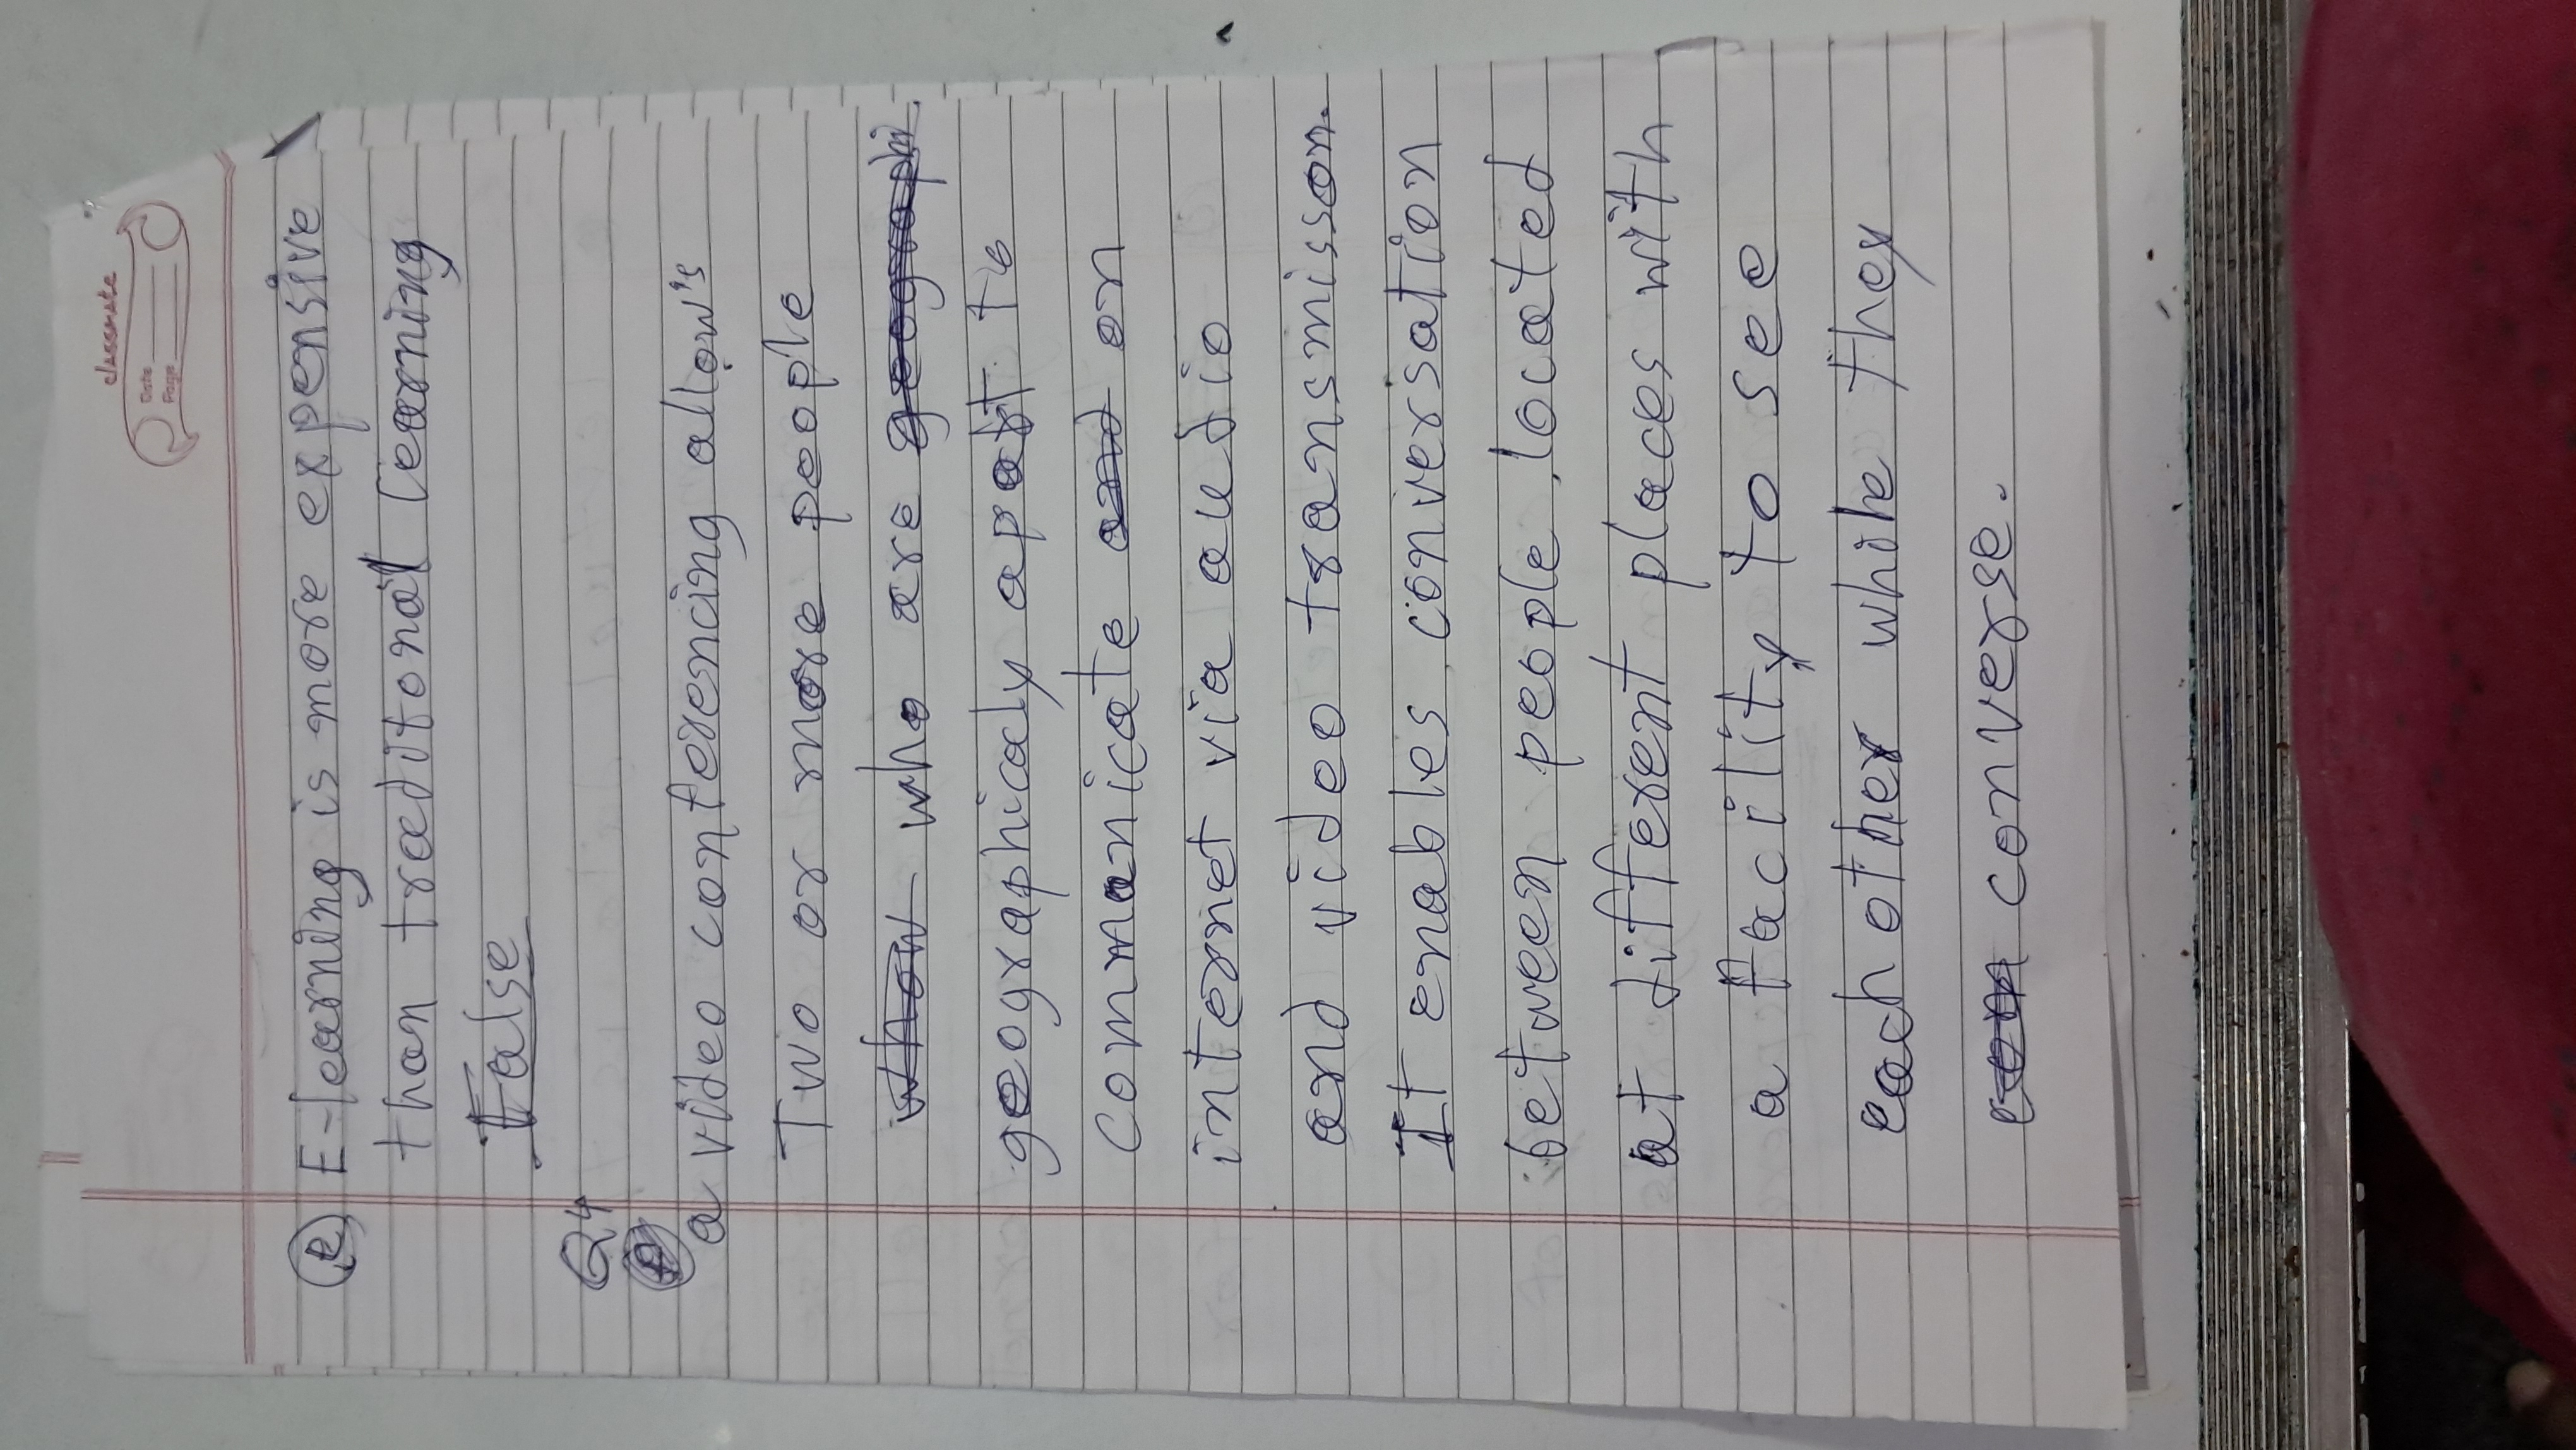 classmate
Date
Page
(e) E-learning is more expensive
than traditonal learning
False
Q4
a video conferencing allow's
Two or more people
whow who are geographi
geographicaly apart to
communicate and on
internet via audio
and video transmisson.
It enables conversation
between people located
at different places with
a facility to see
each other while they
com converse.